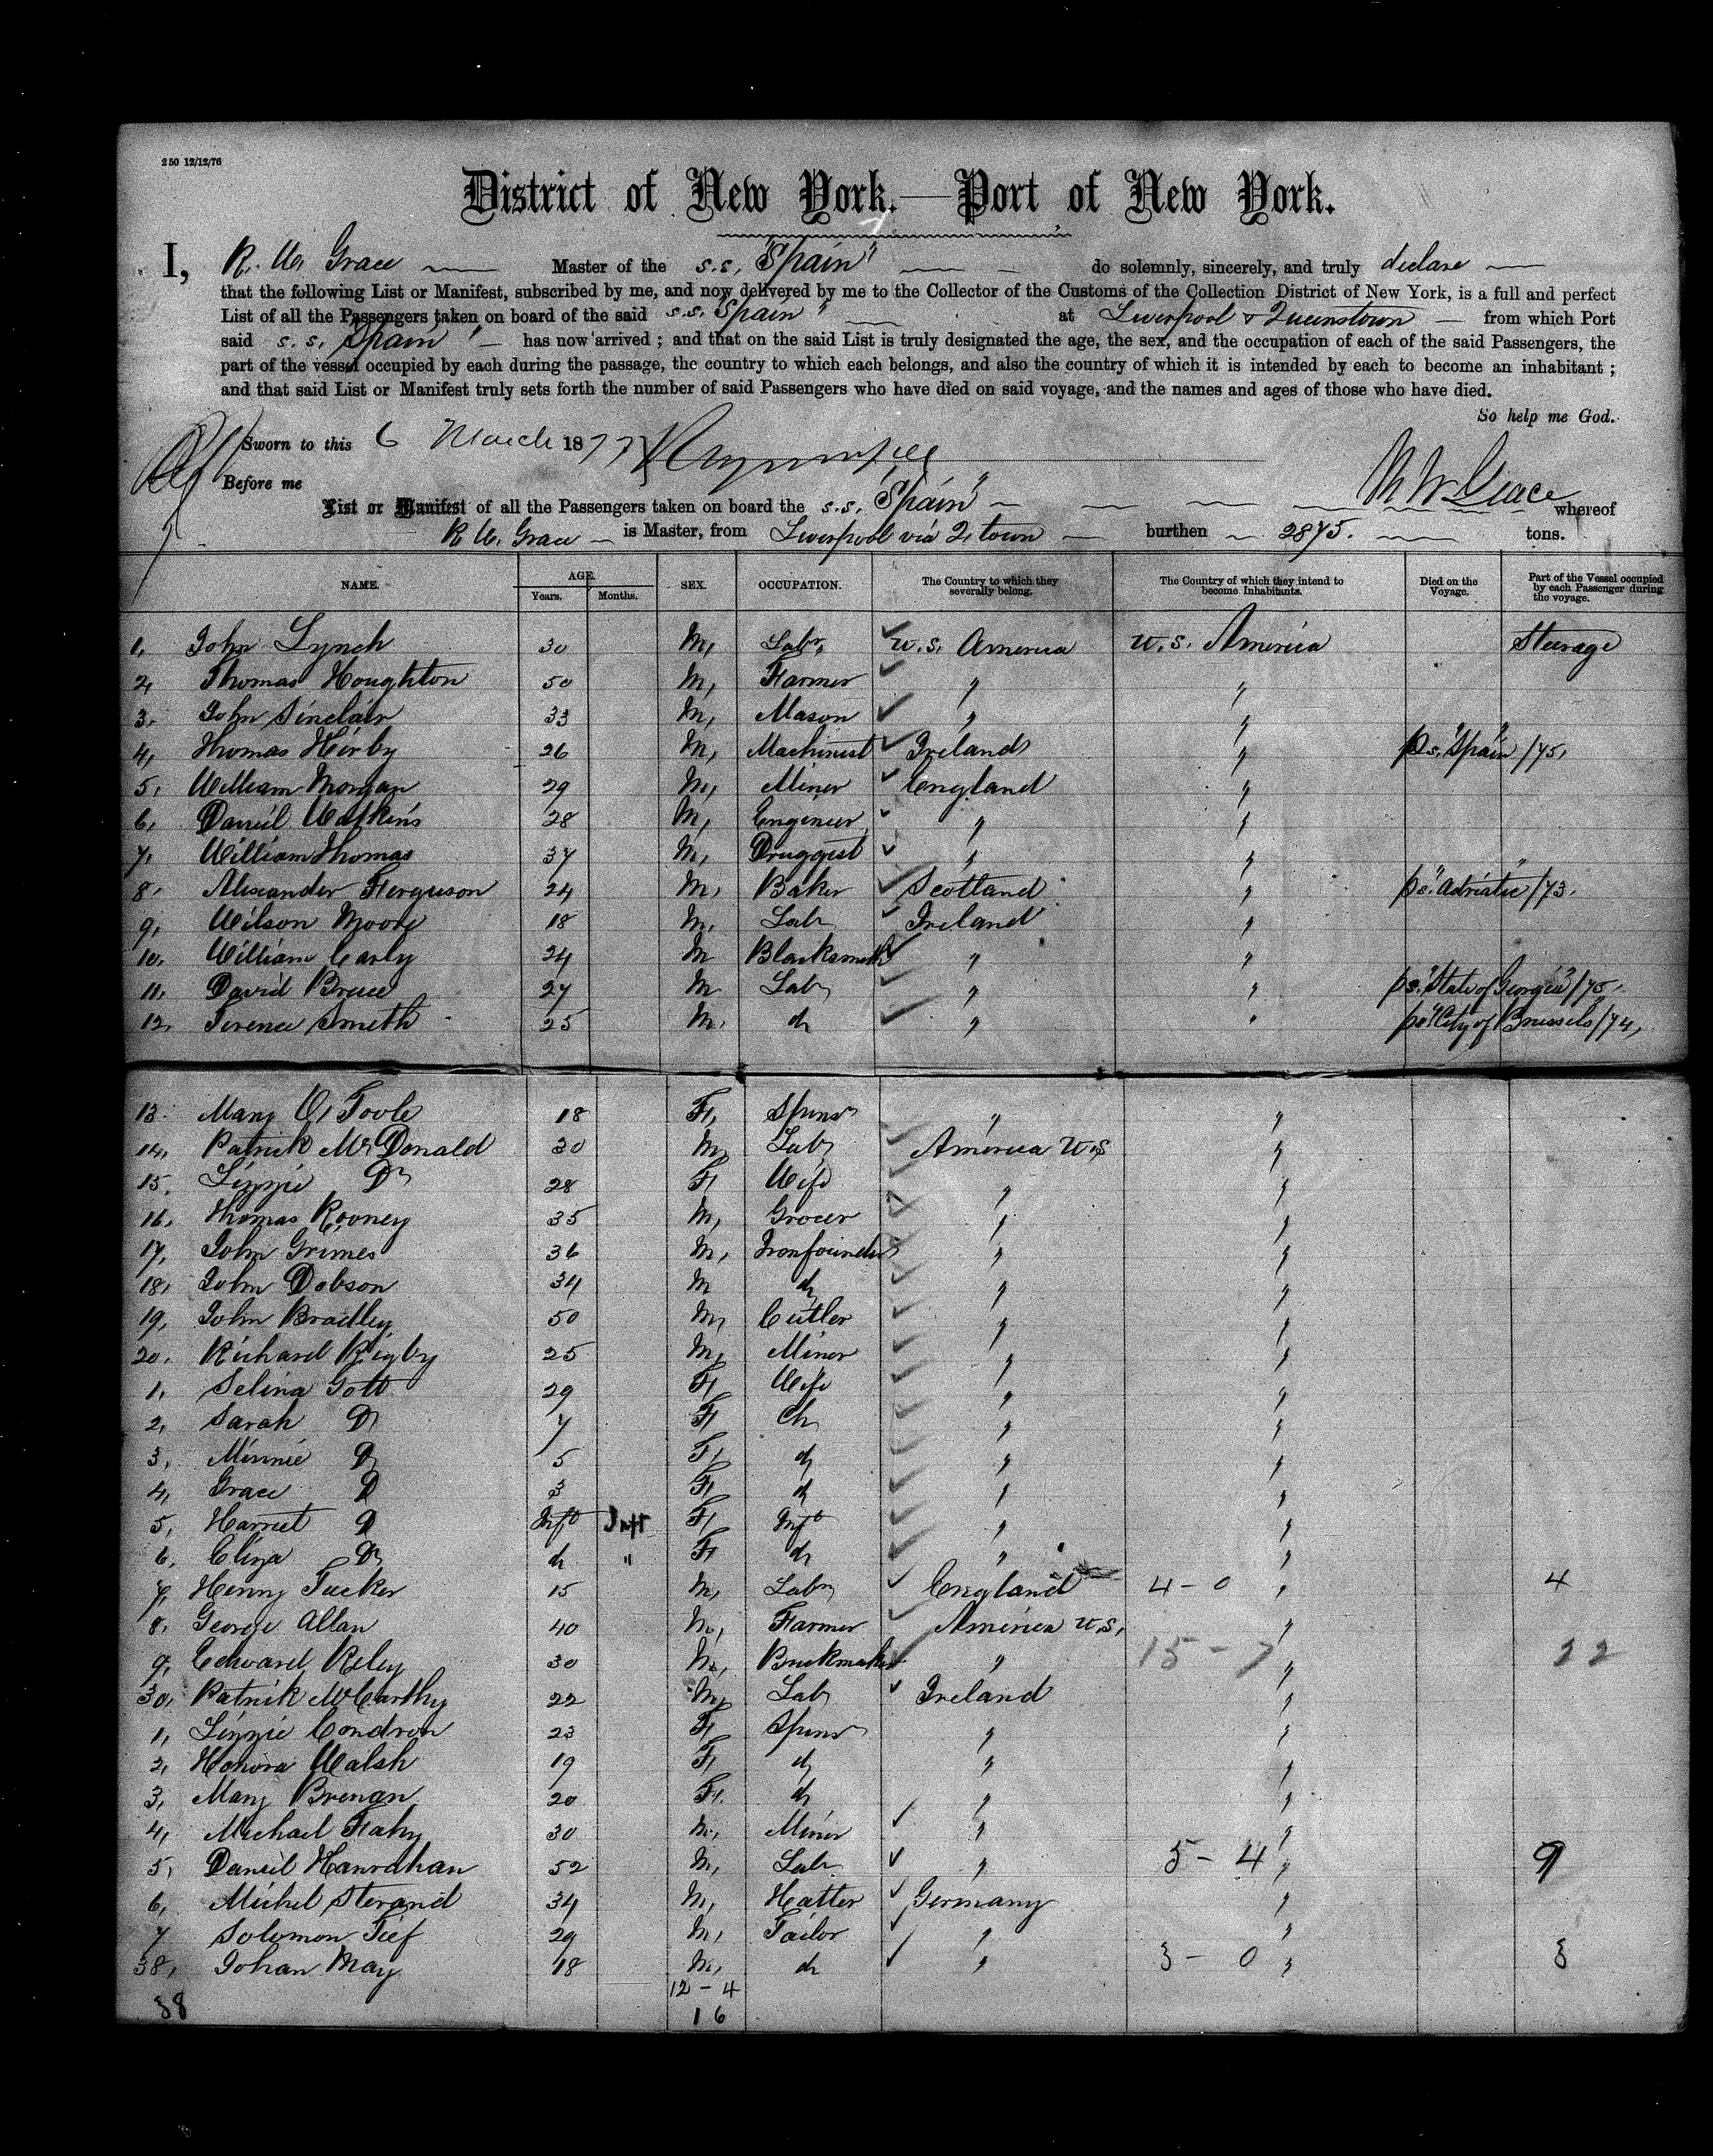 250 12/12/76
District of New York.—Port of New York.
I, R. W. Grace Master of the s.s. "Spain" do solemnly, sincerely, and truly declare
that the following List or Manifest, subscribed by me, and now delivered by me to the Collector of the Customs of the Collection District of New York, is a full and perfect
List of all the Passengers taken on board of the said s.s. "Spain" at Liverpool & Queenstown from which Port
said s.s. "Spain" has now arrived ; and that on the said List is truly designated the age, the sex, and the occupation of each of the said Passengers, the
part of the vessel occupied by each during the passage, the country to which each belongs, and also the country of which it is intended by each to become an inhabitant ;
and that said List or Manifest truly sets forth the number of said Passengers who have died on said voyage, and the names and ages of those who have died.
So help me God.
Sworn to this 6 March 1877
Before me R W Grace
List or Manifest of all the Passengers taken on board the s.s. "Spain" whereof
R. W. Grace is Master, from Liverpool via Q.town burthen 2875. tons.
NAME. AGE. SEX. OCCUPATION. The Country to which they severally belong. The Country of which they intend to become Inhabitants. Died on the Voyage. Part of the Vessel occupied by each Passenger during the voyage.
Years. Months.
1, John Lynch 30 M, Labr, U.S. America U.S. America Steerage
2, Thomas Houghton 50 M, Farmer " "
3, John Sinclair 33 M, Mason " "
4, Thomas Kirby 26 M, Machinist Ireland " ps. "Spain"/75,
5, William Morgan 29 M, Miner England "
6, Daniel Watkins 28 M, Engineer " "
7, William Thomas 37 M, Druggist " "
8, Alexander Ferguson 24 M, Baker Scotland " ps. "Adriatic"/73.
9, Wilson Moore 18 M, Labr Ireland "
10, William Carly 24 M Blacksmith " "
11, David Bruce 27 M Labr " " ps. "State of Georgia"/75,
12, Terence Smith 25 M, do " " ps "City of Brussels"/74,
13. Mary O'Toole 18 F, Spinsr " "
14, Patrick McDonald 30 M, Labr America U.S "
15, Lizzie Do 28 F Wife " "
16, Thomas Rooney 35 M, Grocer " "
17, John Grimes 36 M, Ironfounder " "
18, John Dobson 34 M do " "
19, John Bradley 50 M, Cutler " "
20, Richard Rigby 25 M, Miner " "
1, Selina Gott 29 F, Wife " "
2, Sarah Do 7 F Ch " "
3, Minnie Do 5 F, do " "
4, Grace Do 3 F, do " "
5, Harriet Do Inft Inft F, Inft " "
6, Eliza Do do " F do " "
7, Henry Tucker 15 M, Labr England 4 - 0 " 4
8, George Allan 40 M, Farmer America U.S, "
9, Edward Riley 30 M, Brickmaker " 15 - 7 " 22
30, Patrick McCarthy 22 M, Labr Ireland "
1, Lizzie Condron 23 F, Spinsr " "
2, Honora Walsh 19 F, do " "
3, Mary Brenan 20 F. do " "
4, Michael Fahy 30 M, Miner " "
5, Daniel Hanrahan 52 M, Labr " 5 - 4 " 9
6, Michel Sterand 34 M, Hatter Germany "
7 Solomon Tief 29 M, Tailor " "
38, Johan May 18 M, do " 3 - 0 " 3
38 12 - 4
16